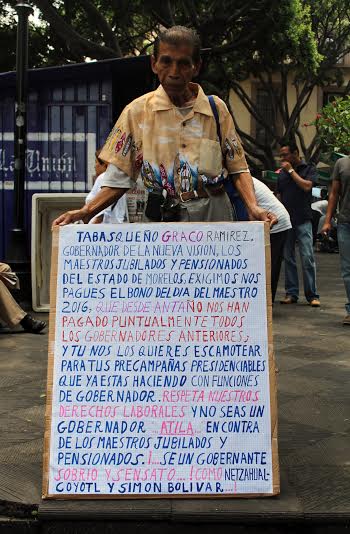 La Unión
TABASQUEÑO GRACO RAMIREZ.
GOBERNADOR DE LA NUEVA VISION, LOS
MAESTROS JUBILADOS Y PENSIONADOS
DEL ESTADO DE MORELOS, EXIGIMOS NOS
PAGUES EL BONO DEL DIA DEL MAESTRO
2016, QUE DESDE ANTAÑO NOS HAN
PAGADO PUNTUALMENTE TODOS
LOS GOBERNADORES ANTERIORES;
Y TU NOS LO QUIERES ESCAMOTEAR
PARA TUS PRECAMPAÑAS PRESIDENCIABLES
QUE YA ESTAS HACIENDO CON FUNCIONES
DE GOBERNADOR. RESPETA NUESTROS
DERECHOS LABORALES Y NO SEAS UN
GOBERNADOR ...ATILA... EN CONTRA
DE LOS MAESTROS JUBILADOS Y
PENSIONADOS. ¡...SE UN GOBERNANTE
SOBRIO Y SENSATO...! ¡COMO NETZAHUAL-
COYOTL Y SIMON BOLIVAR...!